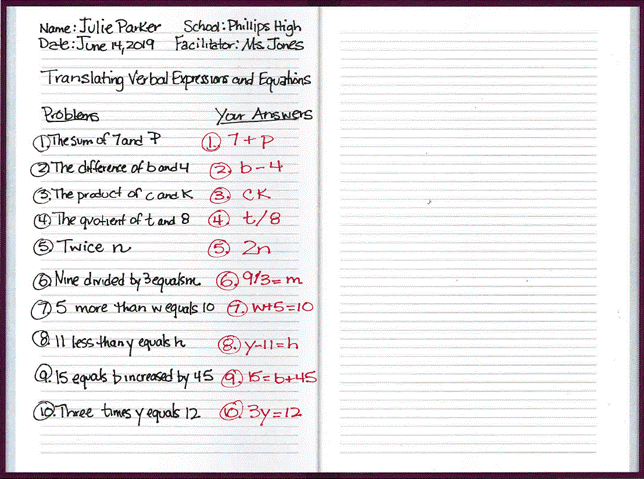 Name: Julie Parker School: Phillips High
Date: June 14, 2019 Facilitator: Ms. Jones
Translating Verbal Expressions and Equations
Problems Your Answers
1. The sum of 7 and P 1. 7 + p
2. The difference of b and 4 2. b - 4
3. The product of c and K 3. CK
4. The quotient of t and 8 4. t/8
5. Twice n 5. 2n
6. Nine divided by 3 equals m 6. 9/3 = m
7. 5 more than w equals 10 7. w+5=10
8. 11 less than y equals h 8. y-11=h
9. 15 equals b increased by 45 9. 15=b+45
10. Three times y equals 12 10. 3y=12